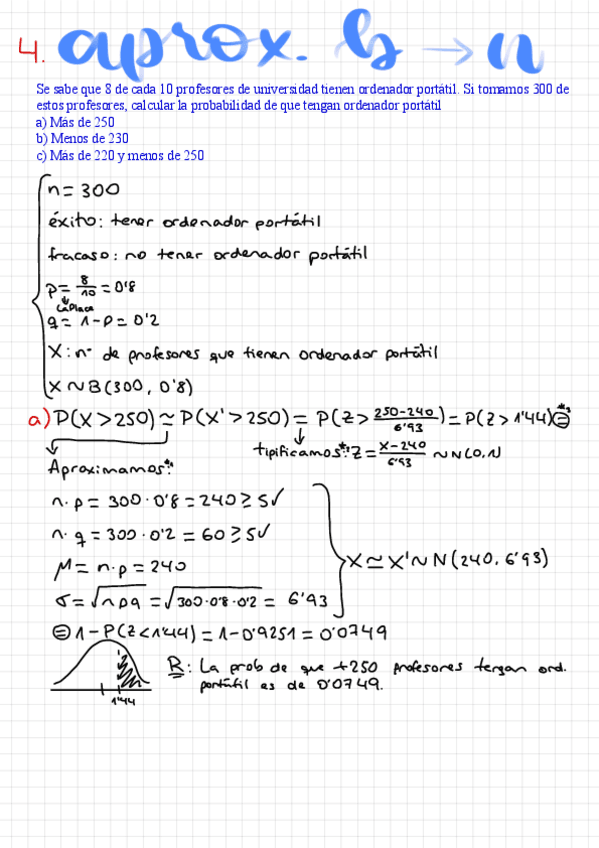 4. aprox. b → n
Se sabe que 8 de cada 10 profesores de universidad tienen ordenador portátil. Si tomamos 300 de
estos profesores, calcular la probabilidad de que tengan ordenador portátil
a) Más de 250
b) Menos de 230
c) Más de 220 y menos de 250
n = 300
éxito: tener ordenador portátil
fracaso: no tener ordenador portátil
p = 8/10 = 0'8
Laplace
q = 1-p = 0'2
X: nº de profesores que tienen ordenador portátil
X ~ B(300, 0'8)
a) P(X > 250) ≃ P(X' > 250) = P(Z > 250-240/6'93) = P(Z > 1'44) =
Aproximamos:
tipificamos: Z = X-240/6'93 ~ N(0,1)
n · p = 300 · 0'8 = 240 ≥ 5 ✓
n · q = 300 · 0'2 = 60 ≥ 5 ✓
μ = n·p = 240
X ≃ X' ~ N(240, 6'93)
σ = √npq = √300·0'8·0'2 = 6'93
= 1-P(Z<1'44) = 1-0'9251 = 0'0749
R: La prob de que +250 profesores tengan ord.
portátil es de 0'0749.
1'44